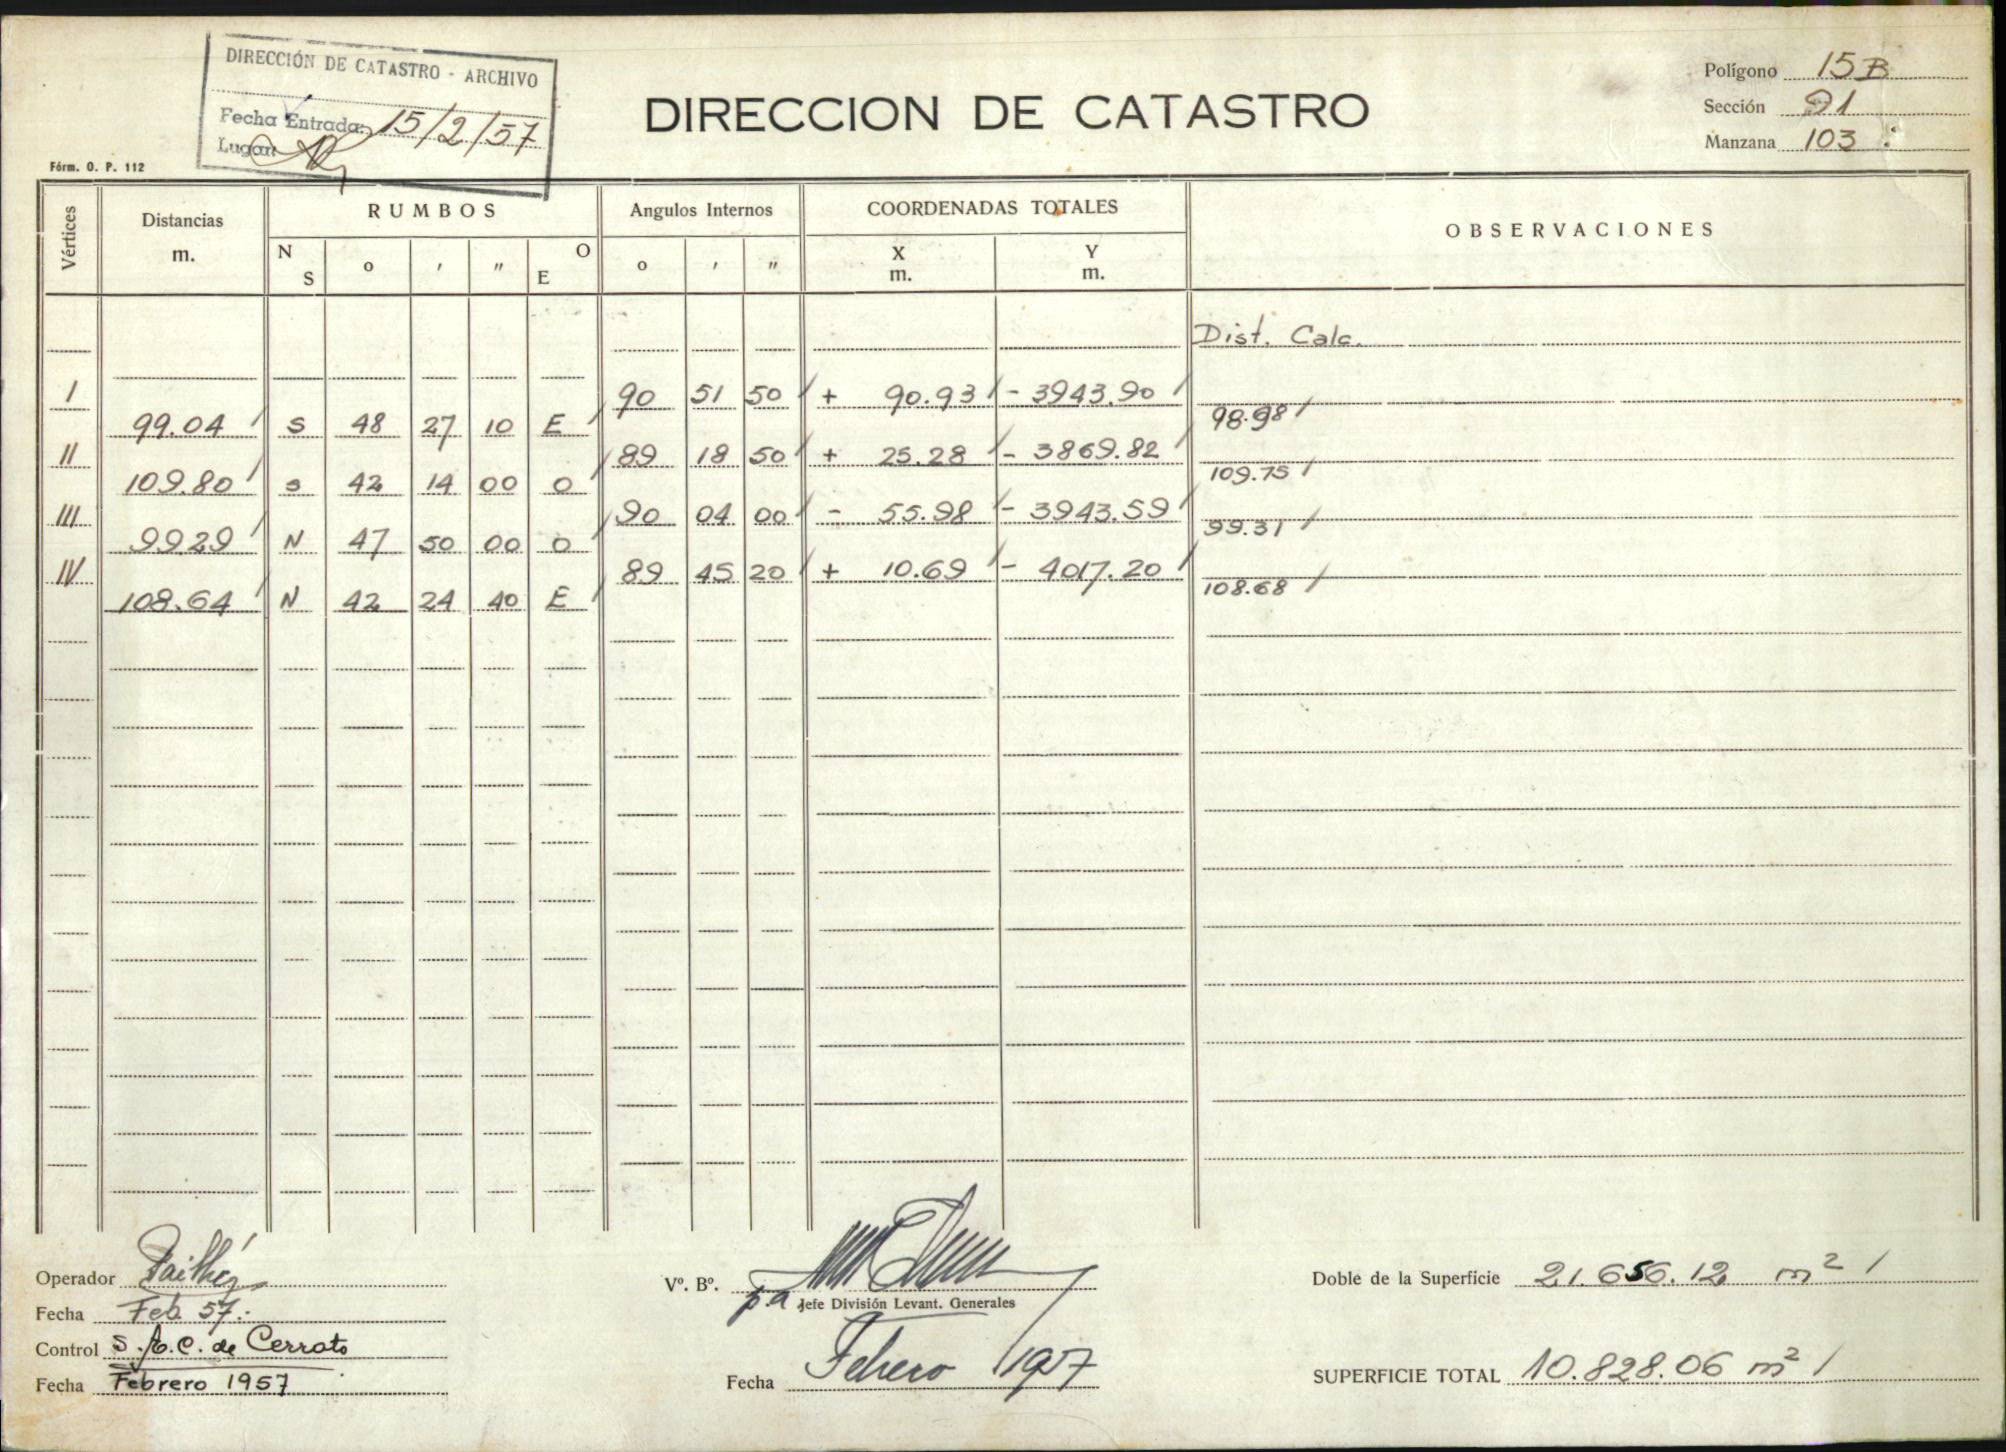 DIRECCIÓN DE CATASTRO - ARCHIVO
Fecha Entrada: 15/2/57
Lugar:
DIRECCION DE CATASTRO
Polígono 15B
Sección 91
Manzana 103
Fórm. O. P. 112
Vértices Distancias m. RUMBOS N S o ′ ″ O E Angulos Internos o ′ ″ COORDENADAS TOTALES X m. Y m. OBSERVACIONES
Dist. Calc.
I 90 51 50 + 90.93 - 3943.90
99.04 S 48 27 10 E 98.98
II 89 18 50 + 25.28 - 3869.82
109.80 S 42 14 00 O 109.75
III 90 04 00 - 55.98 - 3943.59
99.29 N 47 50 00 O 99.31
IV 89 45 20 + 10.69 - 4017.20
108.64 N 42 24 40 E 108.68
Operador
Fecha Feb. 57.
Control S. de Cerrato
Fecha Febrero 1957
Vº. Bº.
p.a Jefe División Levant. Generales
Fecha Febrero 1957
Doble de la Superficie 21.656.12 m²
SUPERFICIE TOTAL 10.828.06 m²